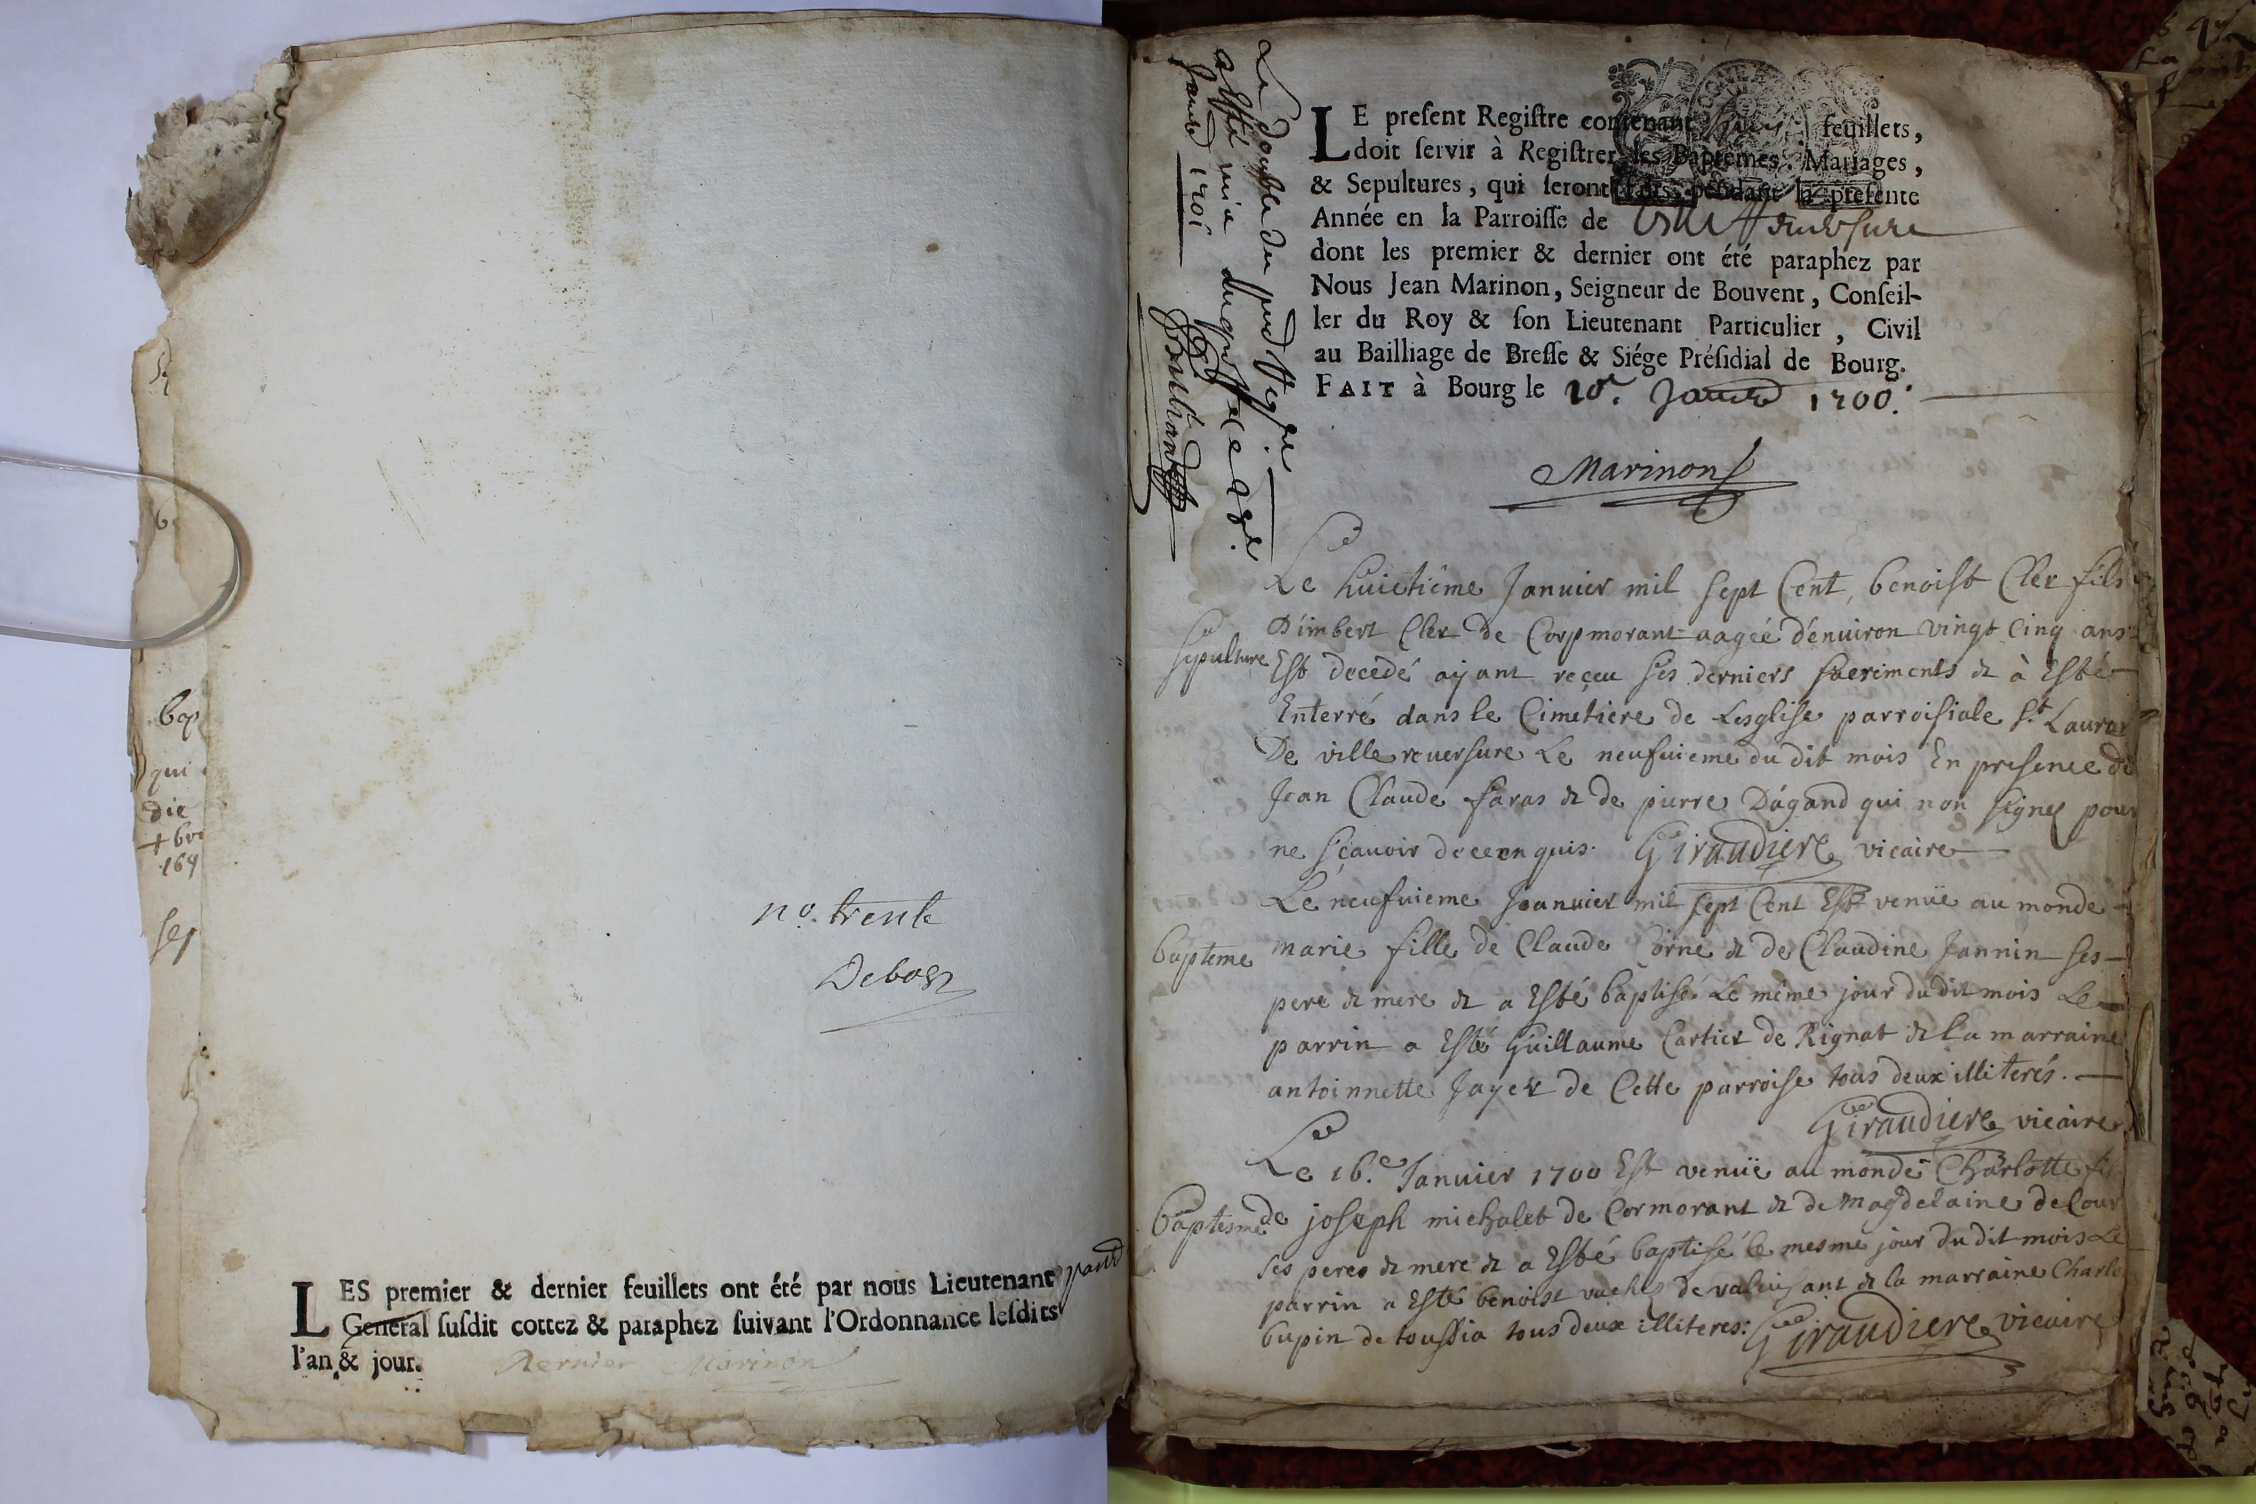 bap
qui
die
+ bre
169
sep
no. trente
Debost
LES premier & dernier feuillets ont été par nous Lieutenant
General susdit cottez & paraphez suivant l'Ordonnance lesdits
l'an & jour.
Dernier Marinon
Le double du pnt Regre
a esté mis au greffe ce 28e
Janvr 1701
LE present Registre contenant feuillets,
doit servir à Registrer les Baptêmes Mariages,
& Sepultures, qui seront faits pendant la presente
Année en la Parroisse de Ville Reversure
dont les premier & dernier ont été paraphez par
Nous Jean Marinon, Seigneur de Bouvent, Conseil-
ler du Roy & son Lieutenant Particulier, Civil
au Bailliage de Bresse & Siége Présidial de Bourg.
FAIT à Bourg le 20e. Janvr 1700.
Marinon
Le huictième Januier mil sept Cent, benoist Cler fils
D'imbert Cler de Corpmorant aagée d'enuiron vingt Cinq ans
sepulture
Est decedé ayant reçeu ses derniers sacriments & à Esté
Enterré dans le Cimetiere de Lesglise parroisiale St. Laurar
De ville reuersure Le neufuieme du dit mois En presence de
Jean Claude faras & de pierre Dagand qui non signes pour
ne sçauoir de ce enquis. Giraudiere vicaire
Le neufuieme Joanuier mil sept Cent Est venuë au monde
bapteme
marie fille de Claude Corne & de Claudine Jannin ses
pere & mere & a Esté baptisé Le même jour dudit mois Le
parrin a Esté Guillaume Cartier de Rignat & la marraine
antoinnette Jayer de Cette parroise tous deux illiterés.
Giraudiere vicaire
Le 16.e Januier 1700 Est venuë au monde Charlotte fi
baptesme
de joseph michalet de Cormorant & de magdelaine de Cour
ses peres & mere & a Esté baptisé le mesme jour du dit mois Le
parrin a Esté benoist de & la marraine Charlo
bupin de toussia tous deux illiteres: Giraudiere vicaire